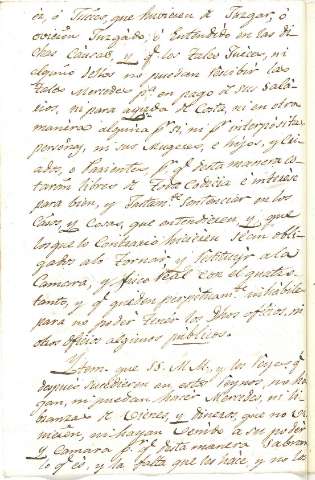 ia, ó Jueces, que huvieren de Juzgar, ó
ovieren Juzgado, ó Entendido en las di
chas Causas, y q.e los tales Jueces, ni
alguno dellos no puedan recibir las
tales Mercedes p.r en pago de su Sala
rios, ni para ayuda de Costa, ni en otra
manera alguna p.r si, ni p.r interpósita
persona, ni sus Mugeres, e hijos, y Cri
ados, o Parientes p.r q.e desta manera es
tarán libres de toda Codicia é interese
para bien, y Justam.te Sentenciar en los
Casos, y Cosas, que entendieren, y que
los que lo Contrario hicieren sean obli
gados a lo tornar, y restituir a la
Camara, y fisco real con el quatro
tanto, y q.e queden perpetuam.te inhabiles
para no poder tener los dhos oficios, ni
otros oficios algunos publicos.
Ytem. que SS. MM. y los Reyes q.e
despues sucedieren en estos Reynos, no ha
gan, ni puedan hacer Mercedes, ni li
branza de Vienes, y dineros, que no
ni hayan Venido a su poder
y Camara p.r q.e desta manera Sabran
lo q.e es, y la falta que les hace, y no los